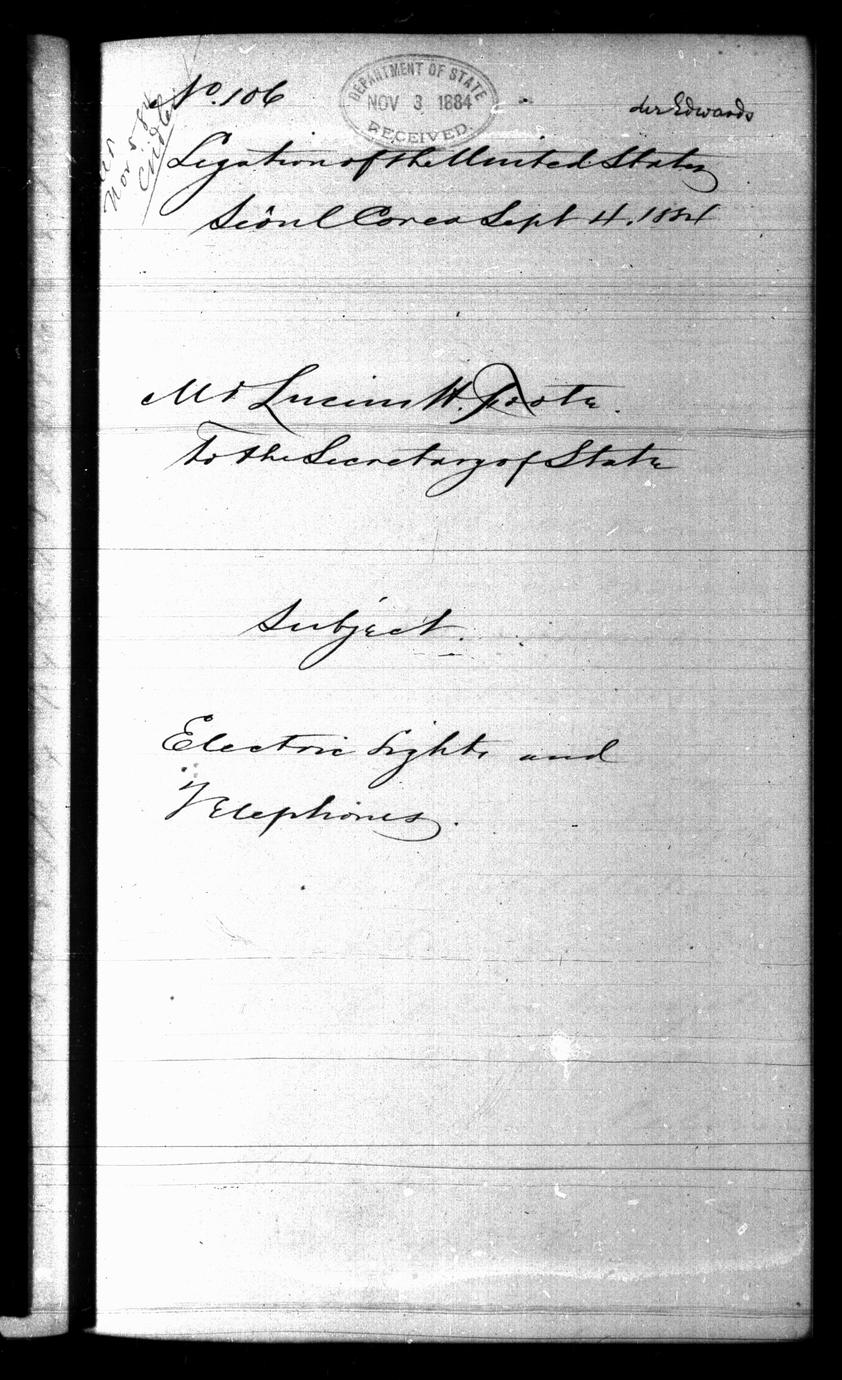 No. 106
DEPARTMENT OF STATE
NOV 3 1884
RECEIVED
Edwards
Nov 5 84
Legation of the United States
Séoul Corea Sept 4. 1884
Mr Lucius H. Foote.
To the Secretary of State
Subject.
Electric Lights and
Telephones.